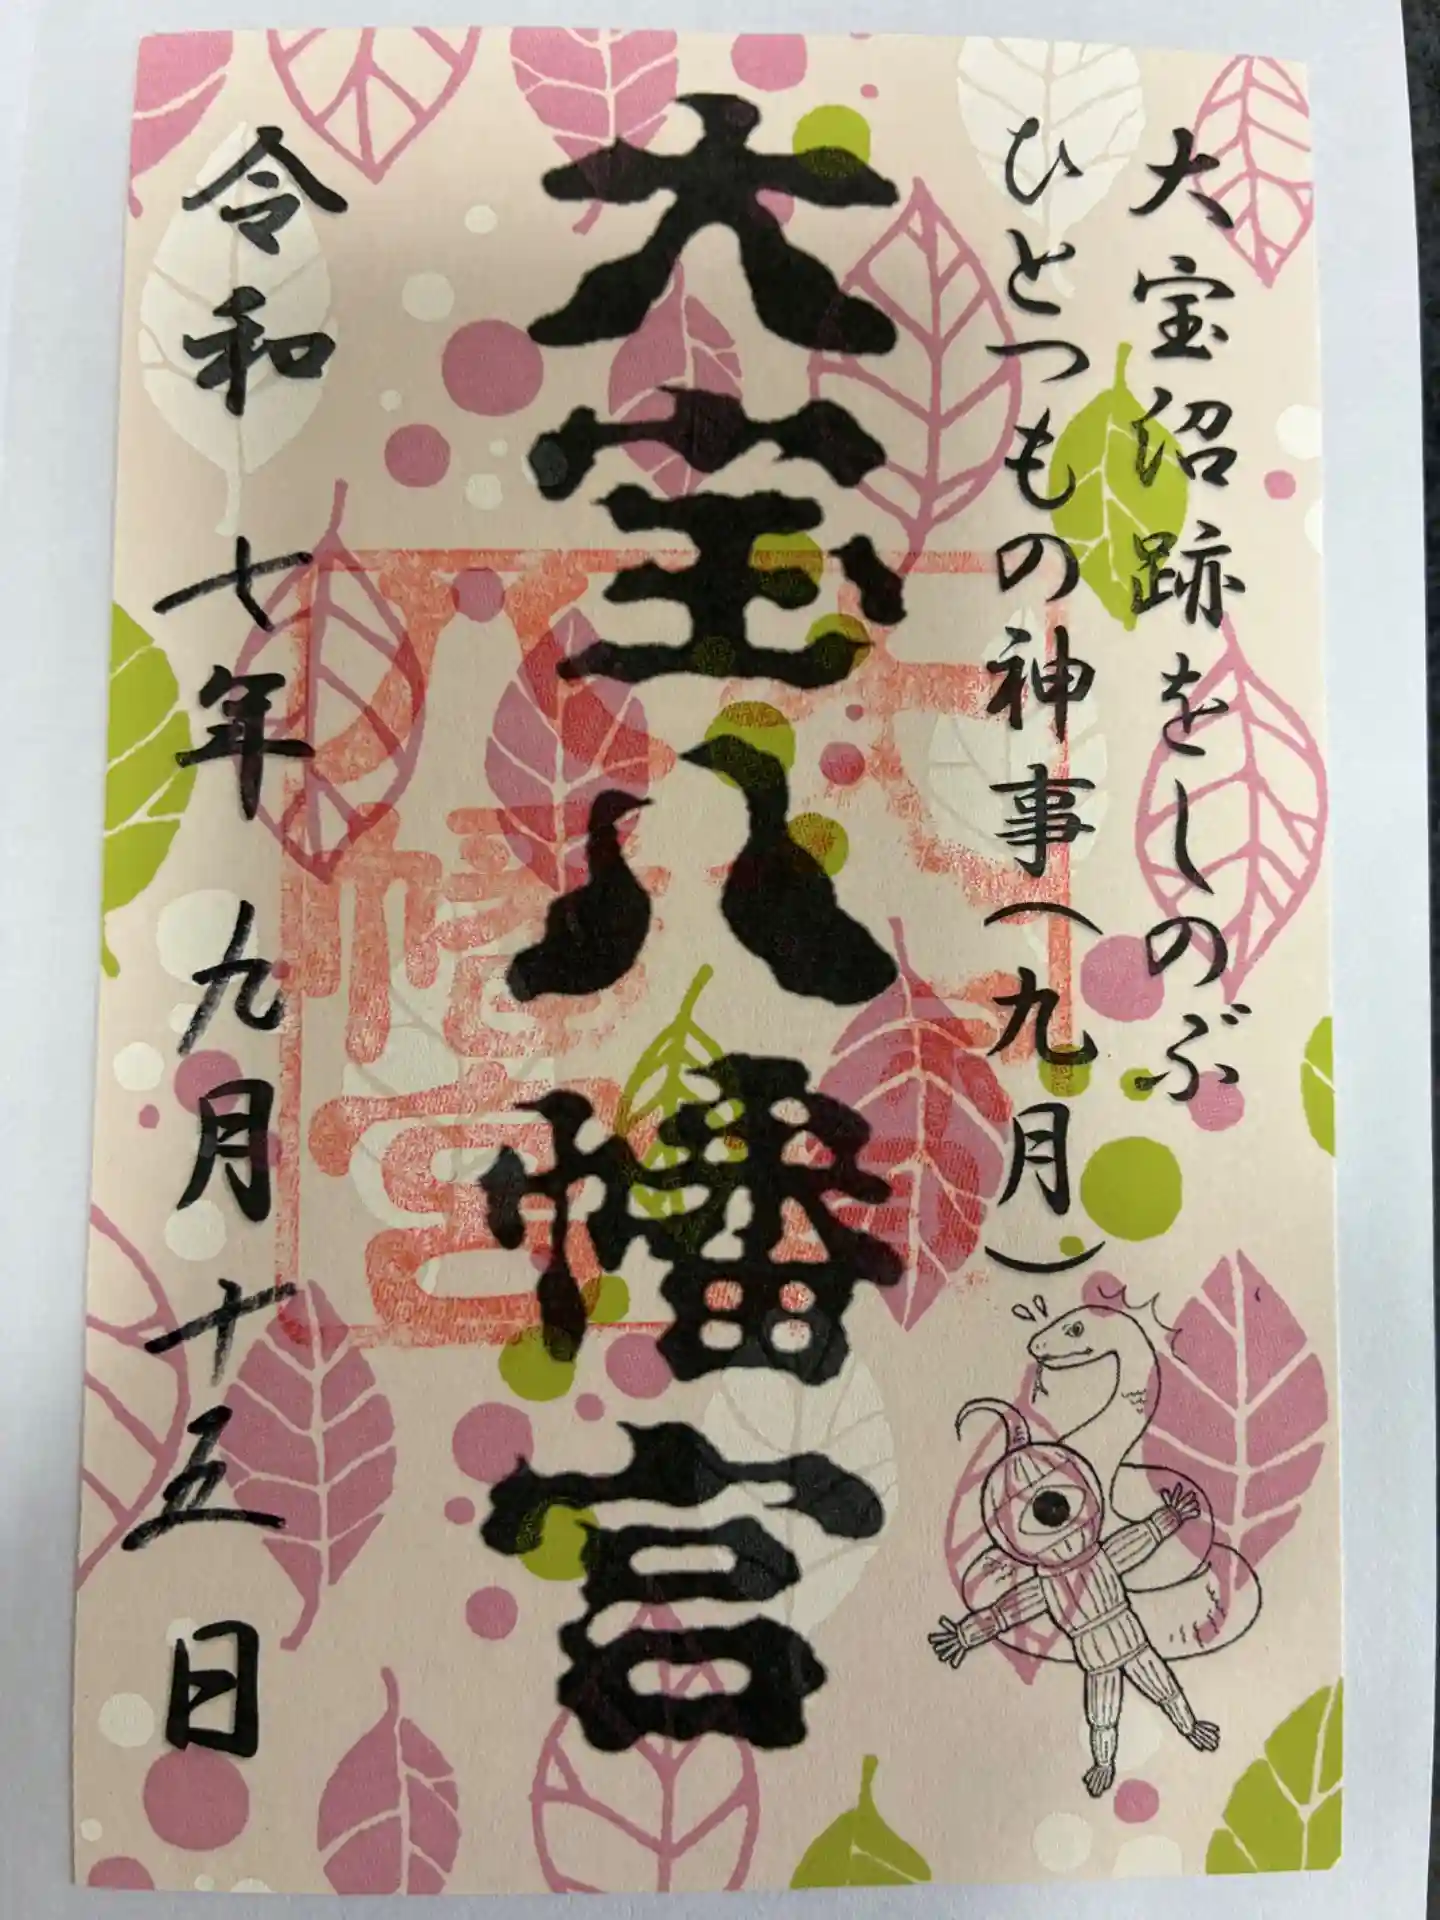 大宝沼跡をしのぶ
ひとつもの神事(九月)
大宝八幡宮
大宝
八幡宮
令和七年九月十五日